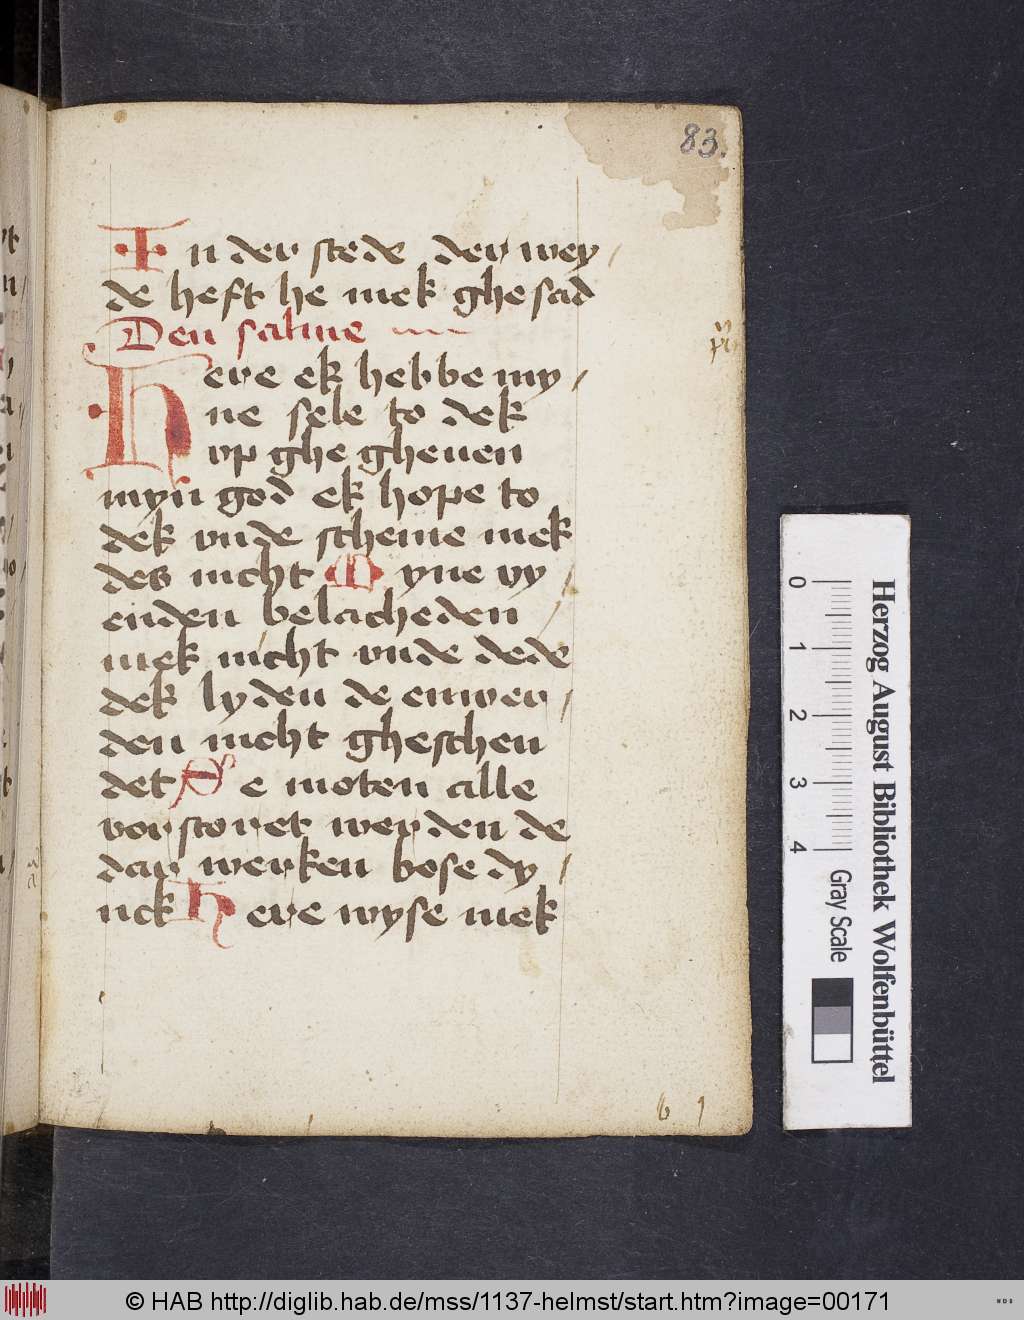 83.
In der stede der wey/
de heft he mek ghesad
Den salme
Here ek hebbe my/
ne sele to dek
vp ghe gheuen
myn god ek hope to
dek vnde scheme mek
des nicht Myne vy/
enden belacheden
mek nicht vnde dede
dek lyden de enwer/
den nicht gheschen
det Se moten alle
vorstoret werden de
dar werken bose dy/
nck Here wyse mek
b 1
0 1 2 3 4
Gray Scale
Herzog August Bibliothek Wolfenbüttel
© HAB http://diglib.hab.de/mss/1137-helmst/start.htm?image=00171